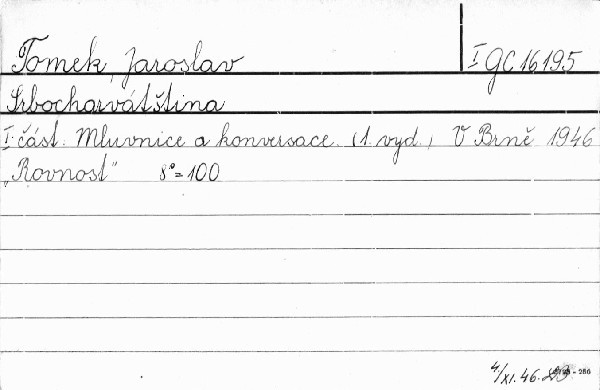 Tomek, Jaroslav I GC 16195
Srbocharvátština
I. část. Mluvnice a konversace. (1. vyd.) V Brně 1946
„Rovnost" 8° = 100
4/XI. 46.